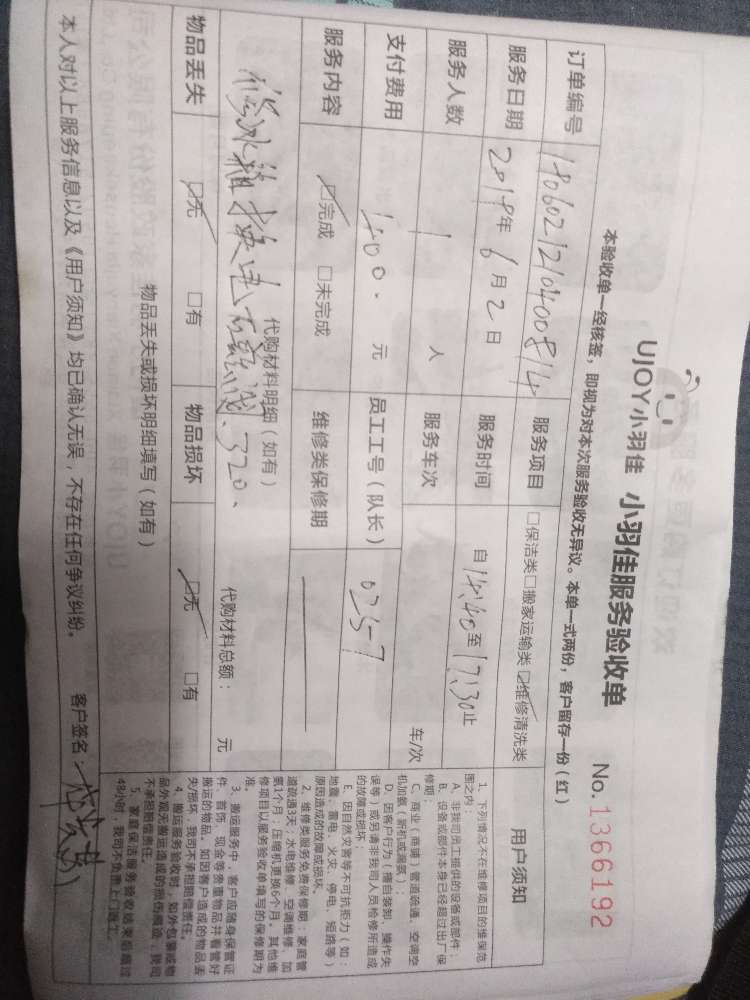 UJOY小羽佳 小羽佳服务验收单 No.1366192
本验收单一经核签，即视为对本次服务验收无异议。本单一式两份，客户留存一份（红）
订单编号 18060212104000814 服务项目 □保洁类□搬家运输类☑维修清洗类
服务日期 2018年6月2日 服务时间 自14:40至17:30止
服务人数 1 人 服务车次 车/次
支付费用 400. 元 员工工号（队长） 0257
服务内容 ☑完成 □未完成 维修类保修期
代购材料明细（如有） 代购材料总额： 元
修冰箱 320、
物品丢失 ☑无 □有 物品损坏 ☑无 □有
物品丢失或损坏明细填写（如有）
本人对以上服务信息以及《用户须知》均已确认无误，不存在任何争议纠纷。 客户签名：
用户须知
1、下列情况不在维修项目的维保范
围之内：
A、非我司员工提供的设备或部件；
B、设备或部件本身已经超过出厂保
修期；
C、商业（商铺）管道疏通、空调空
机加氨（新机或漏氨）；
D、因客户行为（擅自装卸、操作失
误等）或另请非我司人员检修所造成
的故障或损坏
E、因自然灾害等不可抗拒力（如：
地震、雷电、火灾、停电、短路等）
原因造成的故障或损坏。
2、维修类服务免费保修期：家庭管
道疏通3天；水电维修、空调维修、加
氨1个月；压缩机更换6个月。其他维
修项目以服务验收单填写的保修期为
准。
3、搬运服务中，客户应随身保管证
件、首饰、现金等贵重物品并看管好
搬运的物品。如因客户造成的物品丢
失/损坏，我司不承担赔偿责任。
4、搬运服务验收时，如外包装或物
品外观无搬运造成的损伤痕迹，我司
不承担赔偿责任。
5、家庭保洁服务验收结束后超过
48小时，我司不负责上门返工。